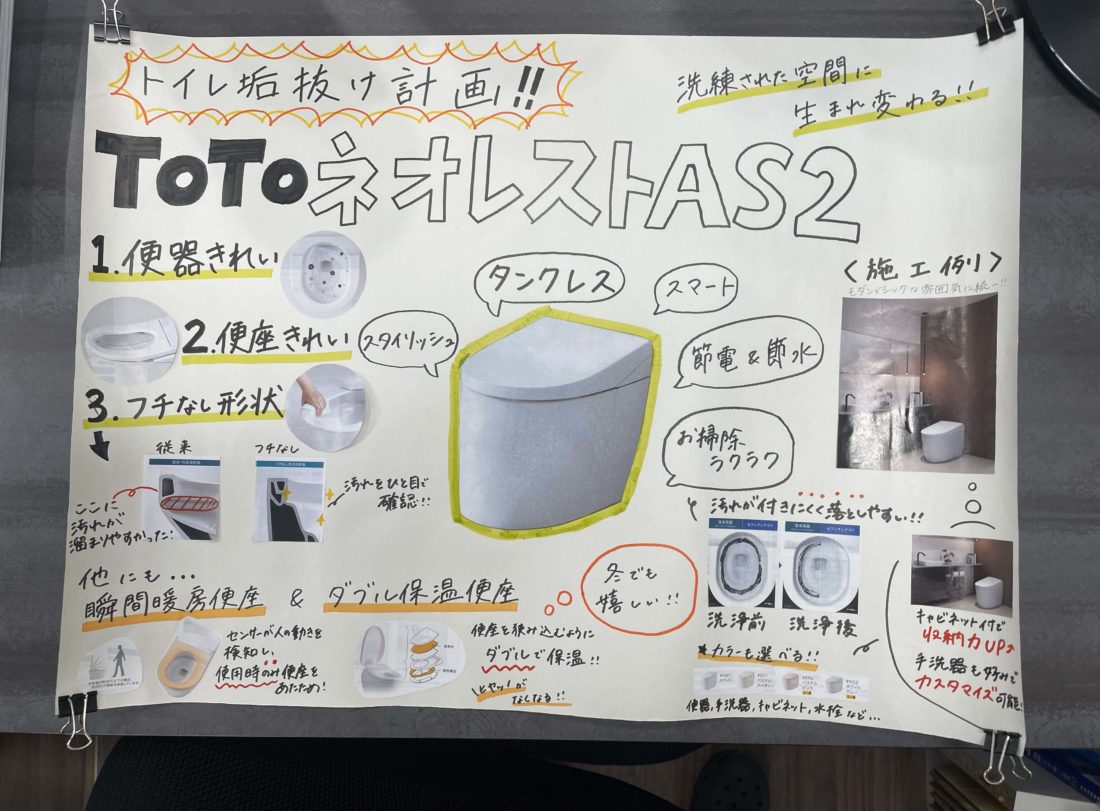 トイレ垢抜け計画!!
洗練された空間に
生まれ変わる!!
TOTOネオレストAS2
1.便器きれい
2.便座きれい
3.フチなし形状
従来
フチなし
ここに
汚れが
溜まりやすかった!
汚れをひと目で
確認!!
タンクレス
スマート
スタイリッシュ
節電&節水
お掃除
ラクラク
<施工例>
モダンでシックな雰囲気に統一!!
汚れが付きにくく落としやすい!!
従来陶器
セフィオンテクト
従来陶器
セフィオンテクト
洗浄前
洗浄後
キャビネット付で
収納力UP♪
手洗器もお好みで
カスタマイズ可能!
*カラーも選べる!!
便器,手洗器,キャビネット,水栓など…
他にも…
瞬間暖房便座 & ダブル保温便座
冬でも
嬉しい!!
センサーが人の動きを
検知し、
使用時のみ便座を
あたため!
便座を挟み込むように
ダブルで保温!!
ヒヤッが
なくなる!!